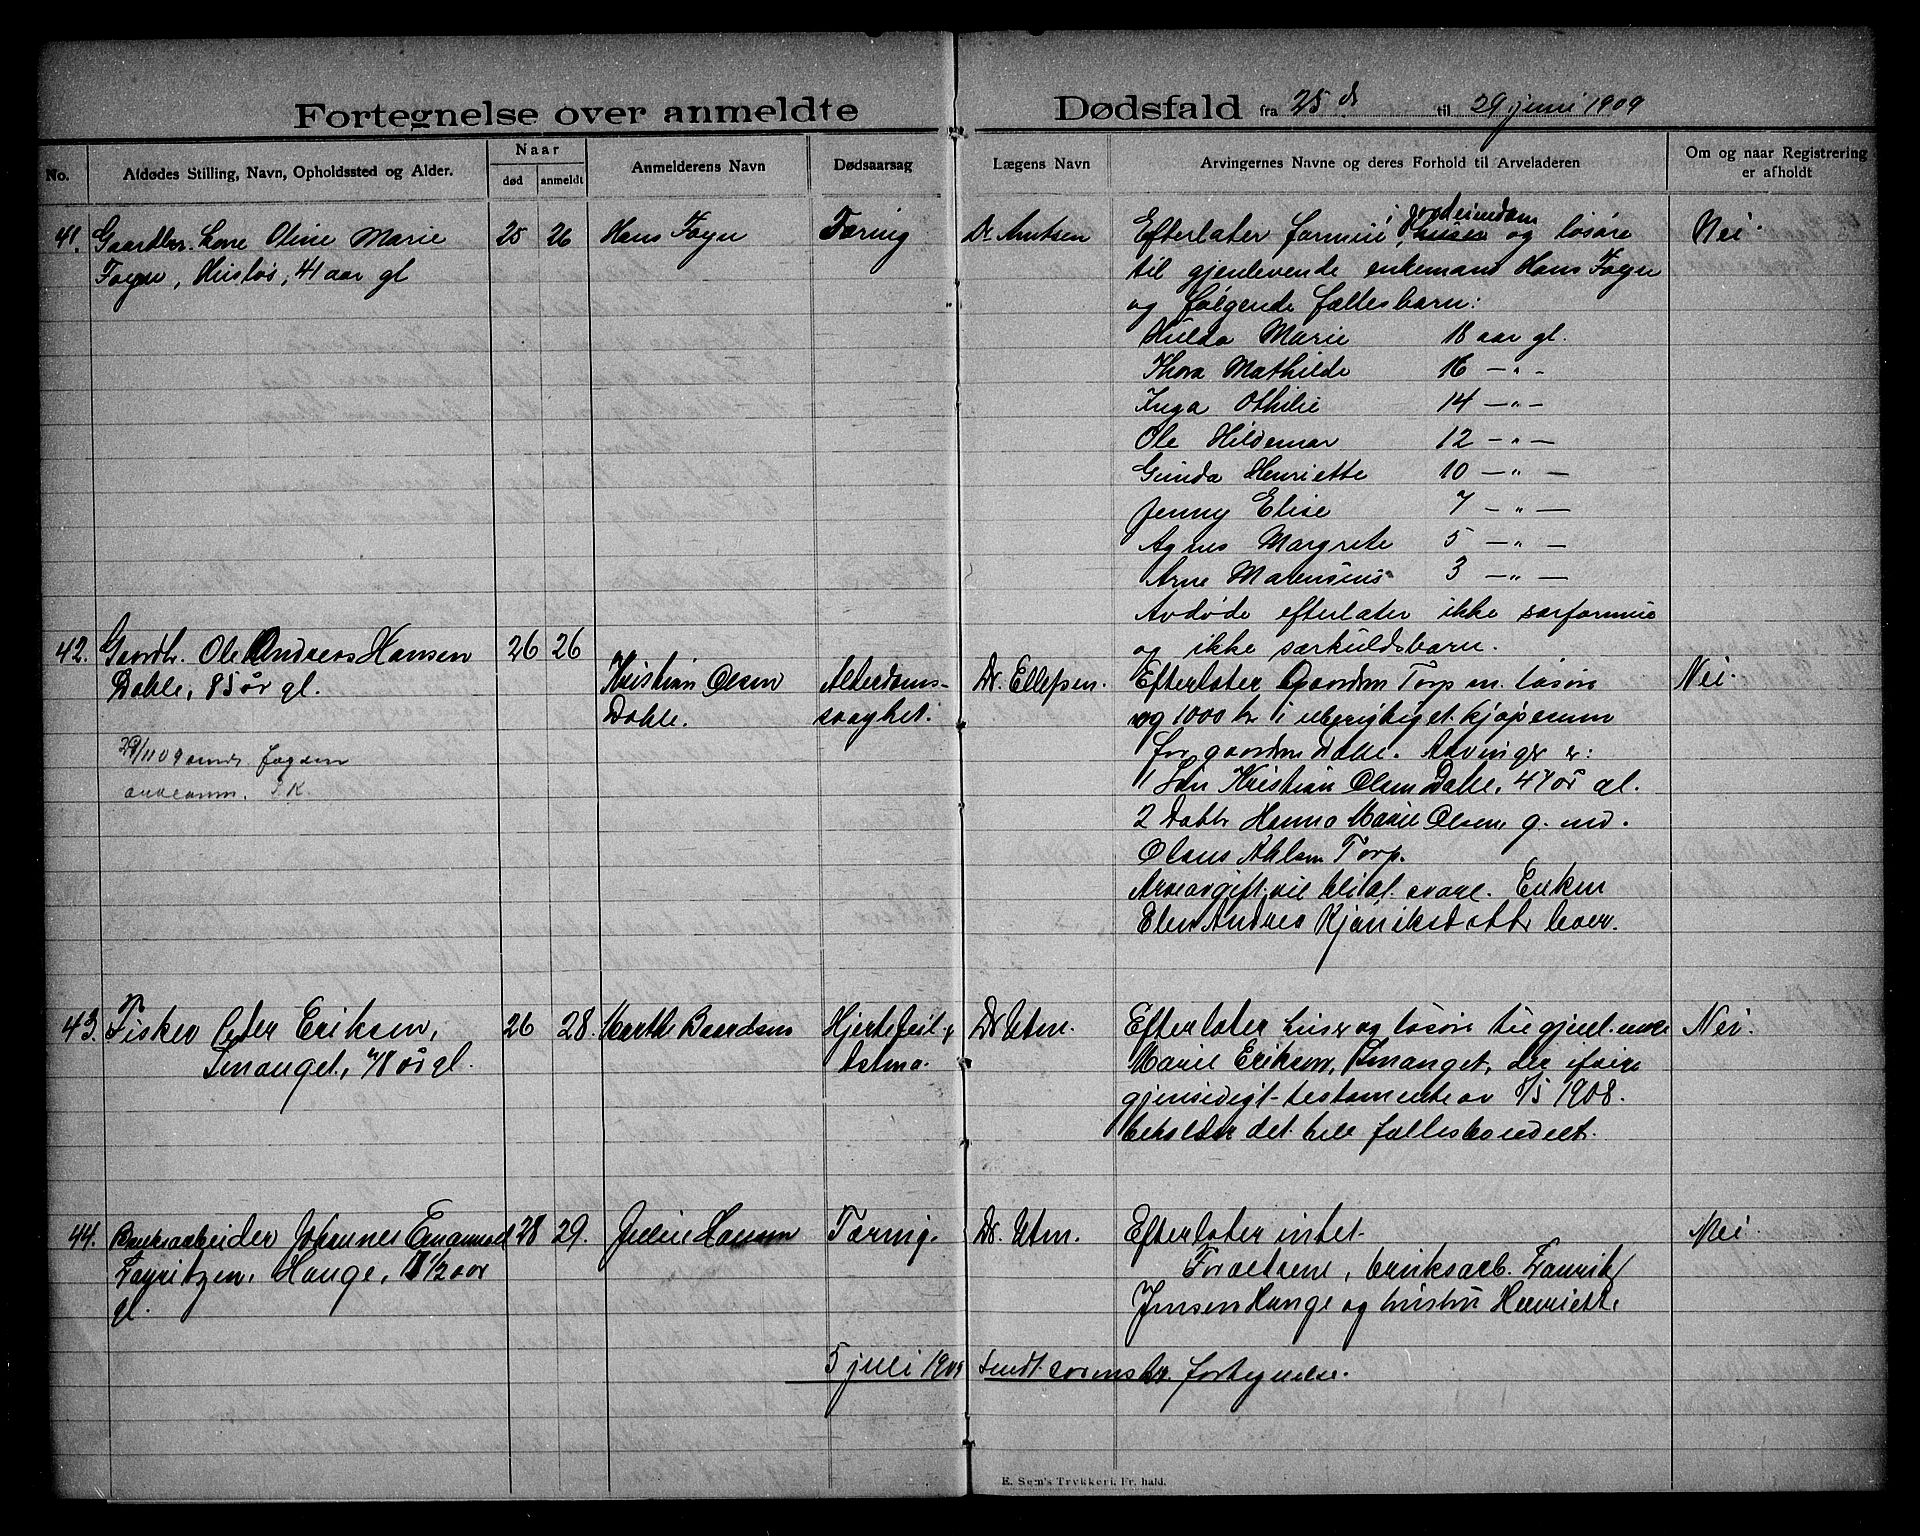 Fortegnelse over anmeldte Dødsfald fra 25 ds til 29 juni 1909
No.
Afdødes Stilling, Navn, Opholdssted og Alder.
Naar
død anmeldt
Anmelderens Navn
Dødsaarsag
Lægens Navn
Arvingernes Navne og deres Forhold til Arveladeren
Om og naar Registrering
er afholdt
41. Gaardbr. kone Oline Marie
Føyn, Husløs, 41 aar gl
25 26
Hans Føyn
Tæring
Dr Arntsen
Efterlater formue i jordeiendom og løsøre
til gjenlevende enkemand Hans Føyn
og følgende fællesbarn:
Hulda Marie 18 aar gl.
Thora Mathilde 16 — „ —
Inga Othilie 14 — „ —
Ole Hildemar 12 — „ —
Gunda Henriette 10 — „ —
Jenny Elise 7 — „ —
Agnes Margrete 5 — „ —
Arne 3 — „ —
Avdøde efterlater ikke særformue
og ikke særkuldsbarn.
Nei.
42. Gaardbr. Ole Andreas Hansen
Dahle, 85 år gl.
26 26
Kristian Olsen
Dahle.
Alderdoms-
svaghet.
Dr. Ellefsen.
Efterlater Gaarden Torp m. løsøre
og 1000 kr i uberigtiget kjøpesum
for gaarden Dahle. Arvinger er:
1 Søn Kristian Olsen Dahle, 47 år gl.
2 Dattr Hanna Marie Olsen, g. med.
Olaus Torp.
Arveavgift vil bli at svare. Enken
Elen Andrea lever.
Nei.
29/11 09
43. Fisker Peder Eriksen,
Smauget, år gl.
26 28.
Marthe Baardsen
Hjertefeil +
Astma.
Efterlater huse og løsøre til gjenl. enke
Marie Eriksen, Smauget, der ifølge
gjensidigt testamente av 8/5 1908.
beholder det hele fællesboe udelt.
Nei.
44. Bruksarbeider Johannes Emanuel
Lauritzen, Hauge, 1/2 aar
gl.
28 29.
Julie Hansen
Tæring.
Efterlater intet.
Forældrene, bruksarb. Laurits
Jensen Hauge og hustru Henriette.
Nei.
5 juli 1909 sendt sorenskr. fortegnelse.
E. Sem's Trykkeri, Fr.hald.